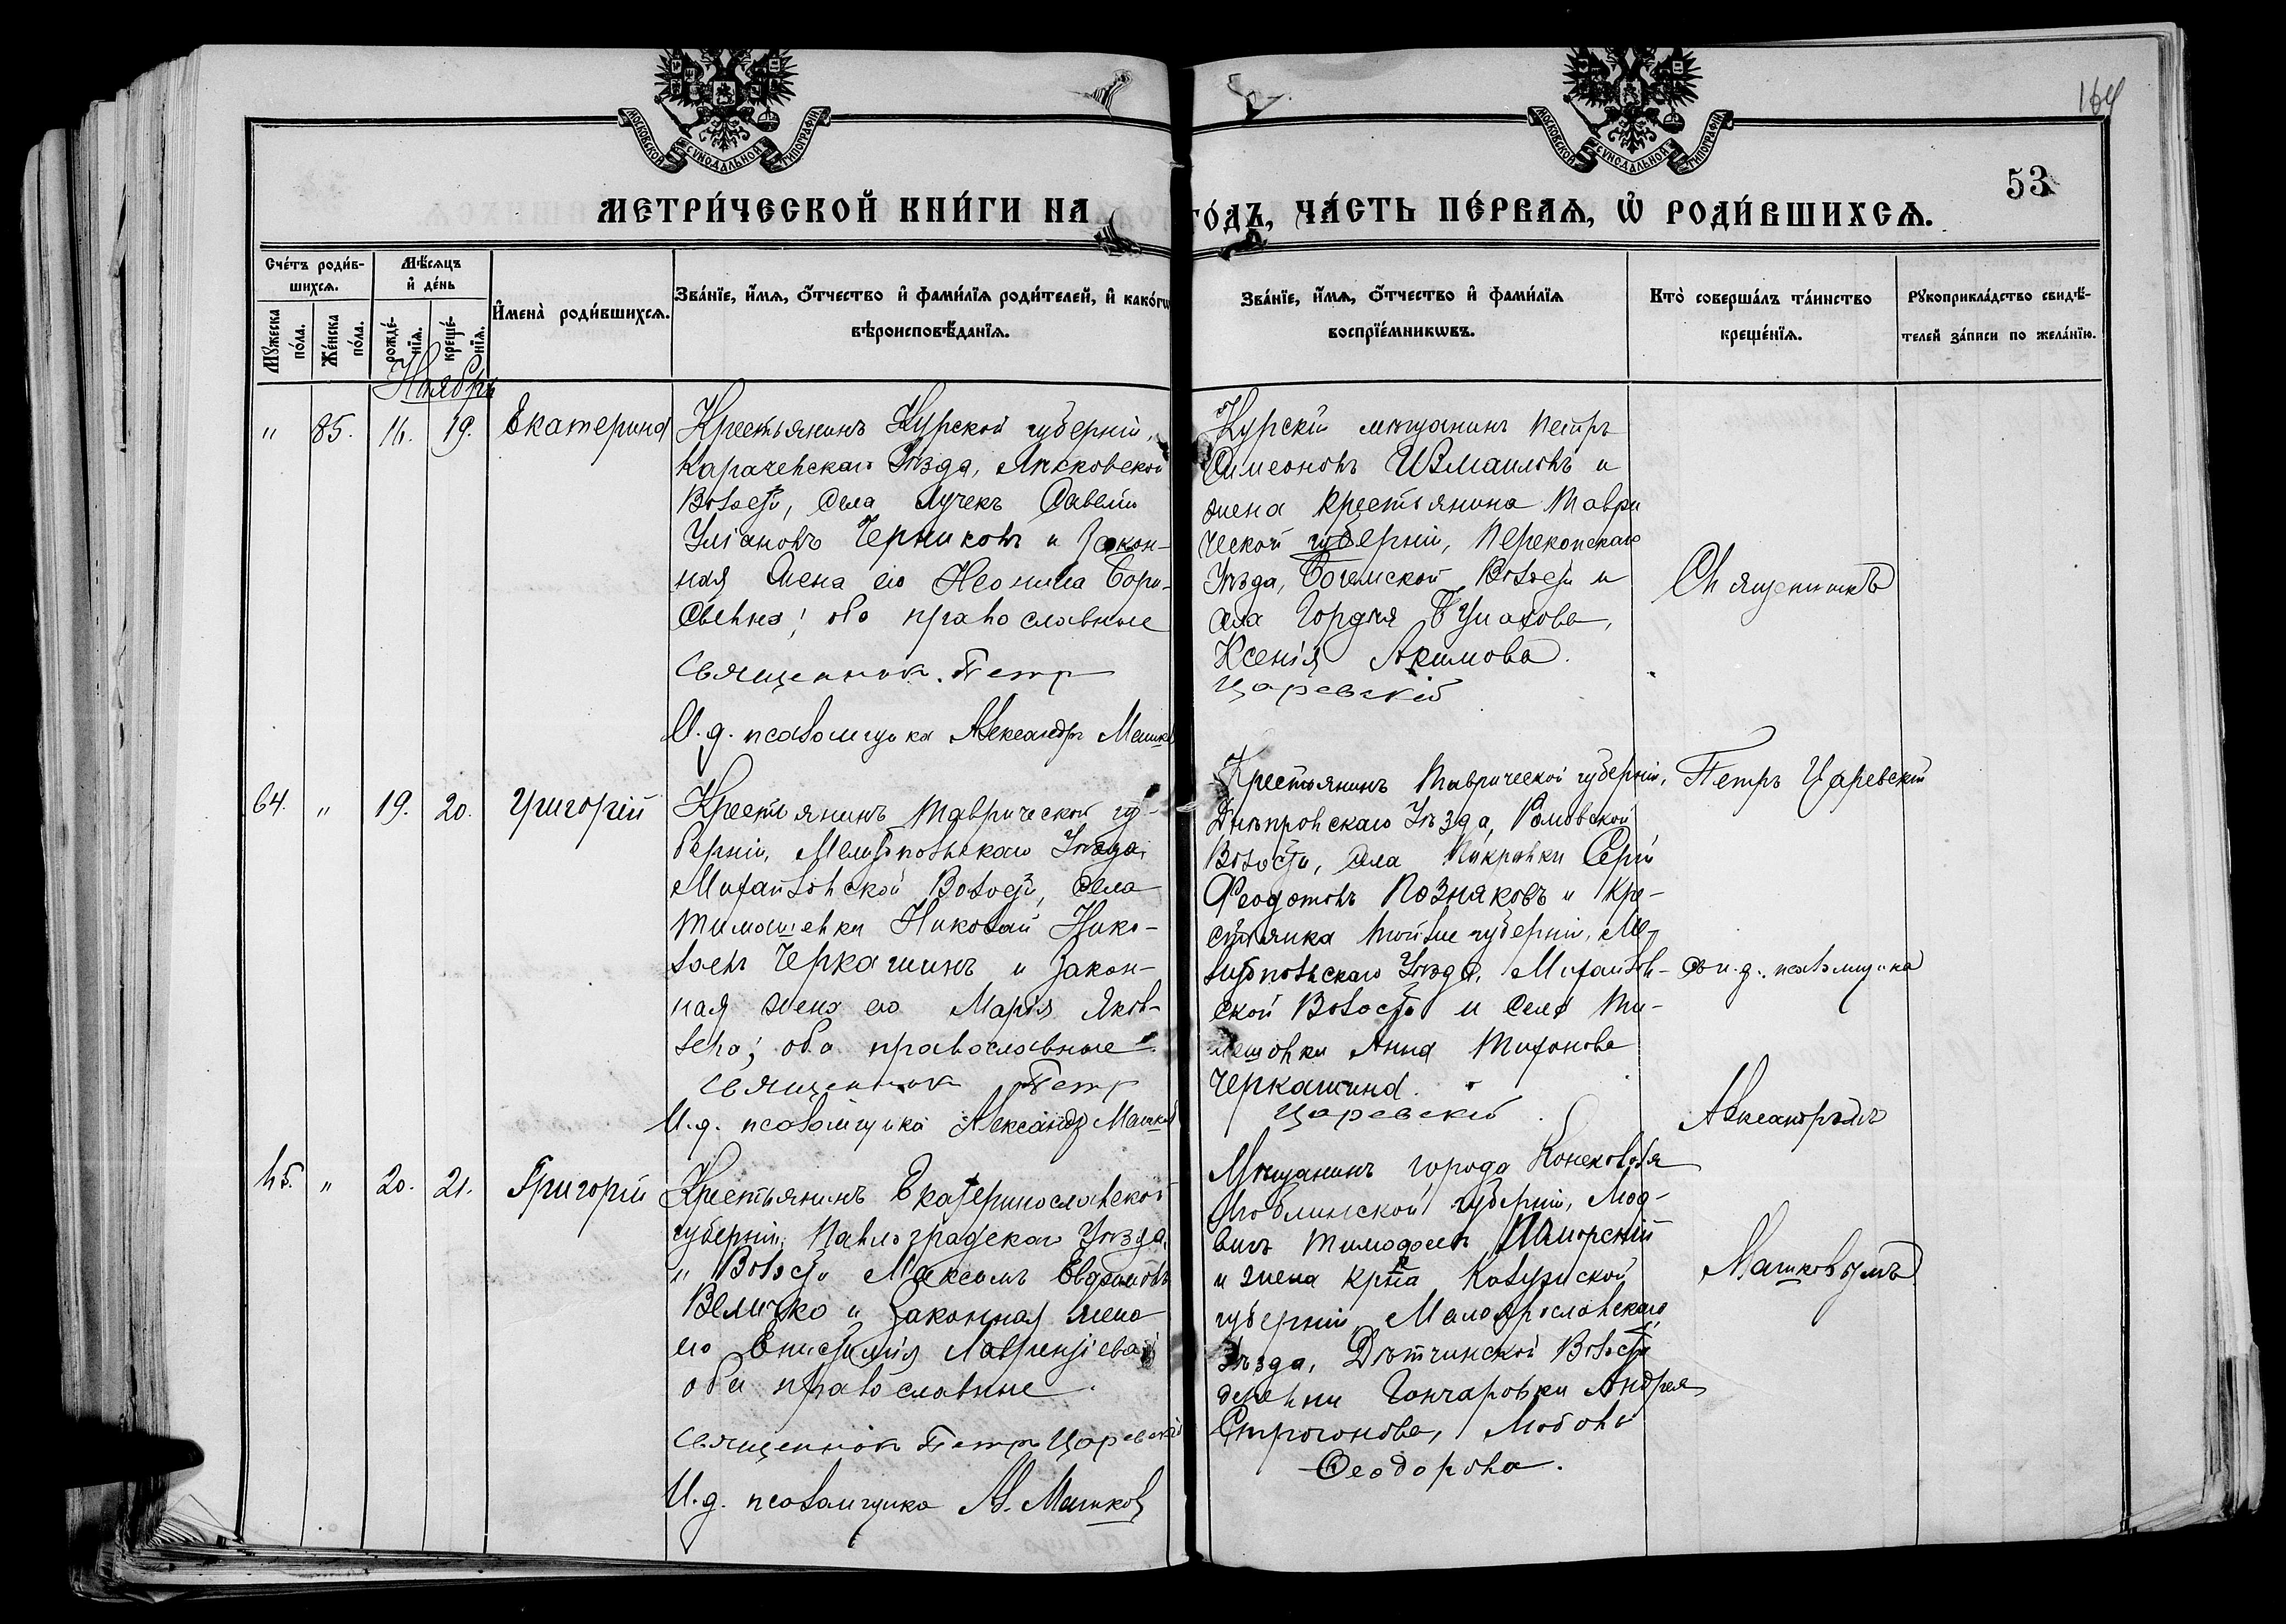 МОСКОВСКОЙ СѴНОДАЛЬНОЙ ТИПОГРАФІИ
МОСКОВСКОЙ СѴНОДАЛЬНОЙ ТИПОГРАФІИ
164
53
МЕТРИ́ЧЕСКОЙ КНИ́ГИ НА
ГО́ДЪ, ЧА́СТЬ ПЕ́РВАѦ, Ѡ РОДИ́ВШИХСѦ.
Сче́тъ роди́в-
шихсѧ.
Мꙋ́жеска по́ла.
Же́нска по́ла.
Мѣ́сѧцъ
и҆ де́нь
рожде́-
нїѧ.
креще́-
нїѧ.
И҆мена̀ роди́вшихсѧ.
Зва́нїе, и҆́мѧ, ѻ҆́тчество и҆ фами́лїѧ роди́телей, и҆ како́гѡ
вѣроисповѣ́данїѧ.
Зва́нїе, и҆́мѧ, ѻ҆́тчество и҆ фами́лїѧ
воспрїе́мникѡвъ.
Кто̀ соверша́лъ та́инство
креще́нїѧ.
Рꙋкоприкла́дство свидѣ́-
телей за́писи по жела́нїю.
Ноябрь
" 85. 16. 19. Екатерина
Крестьянинъ Курской губерніи,
уѣзда,
Волости, села Лучекъ Савелій
Уліановъ Черниковъ и закон-
ная жена его Неонила Бори-
совевна; оба православные
Священник Петр
Царевскій
И. д. псаломщика Александръ Машков
Курскій мѣщанинъ Петръ
Симеоновъ Измаиловъ и
жена крестьянина Таври
ческой губерніи, Перекопскаго
Уѣзда, Богемской Волости и
села Гордѣя
Ксенія Акимова.
Священникъ
Петръ Царевскій
съ и. д. псаломщика
Александромъ
Машковымъ
64. " 19. 20. Григорій
Крестьянинъ Таврической гу-
берніи, Мелитопольскаго Уѣзда,
Михайловской Волости, села
Тимошевки Николай Нико-
лаевъ Черкашинъ и закон-
ная жена его Марія Яков-
лева; оба православные
Священник Петр
Царевскій
И. д. псаломщика Александр Машков
Крестьянинъ Таврической губерніи,
Днѣпровскаго Уѣзда,
Волости, села
Феодотовъ Позняковъ и кре-
стьянка той же губерніи, Ме-
литопольскаго Уѣзда, Михайлов-
ской Волости и села Ти-
мошовки Анна Тихонова
Черкашина.
65. " 20. 21. Григорій
Крестьянинъ Екатеринославской
губерніи, Павлоградскаго Уѣзда,
и Волости Максимъ Евфимовъ
Величко и законная жена
его Епистимія Лаврентіева;
оба православные.
Священник Петр Царевскій
И. д. псаломщика Ал. Машков
Мѣщанинъ города
Люблинской губерніи, Люд-
вигъ Тимофеевъ
и жена кр-на Калужской
губерніи Малоярославскаго
Уѣзда, Дѣтчинской Волости
деревни Гончаровки Андрея
Строгонова, Любовь
Феодорова.